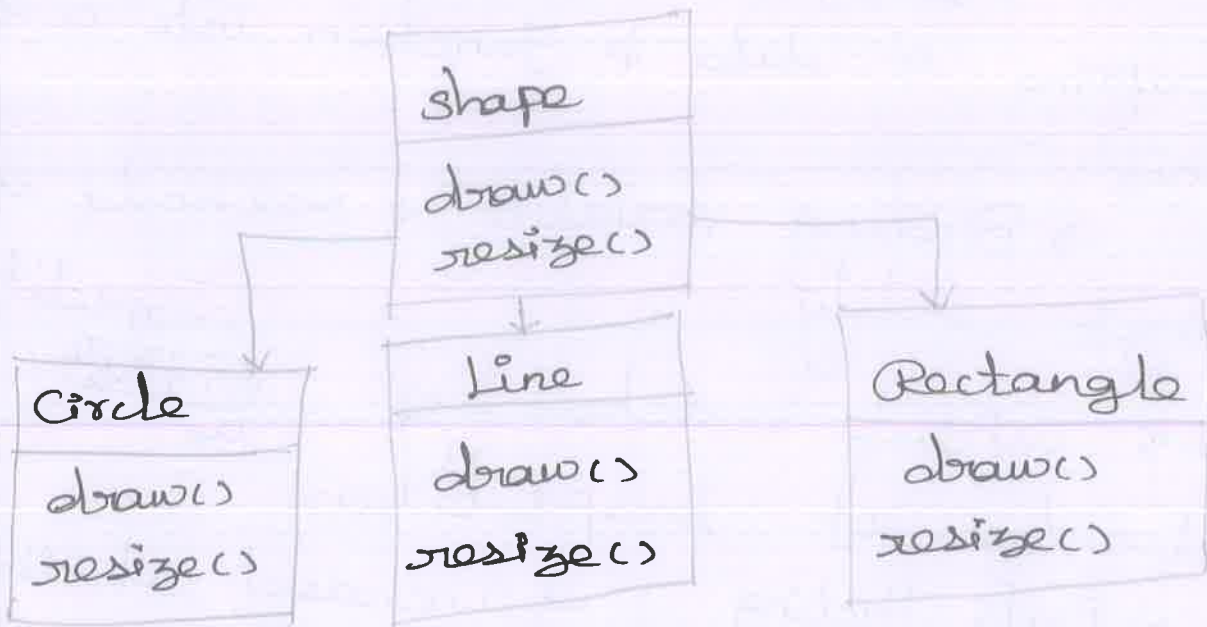 shape
draw()
resize()
Circle
draw()
resize()
Line
draw()
resize()
Rectangle
draw()
resize()